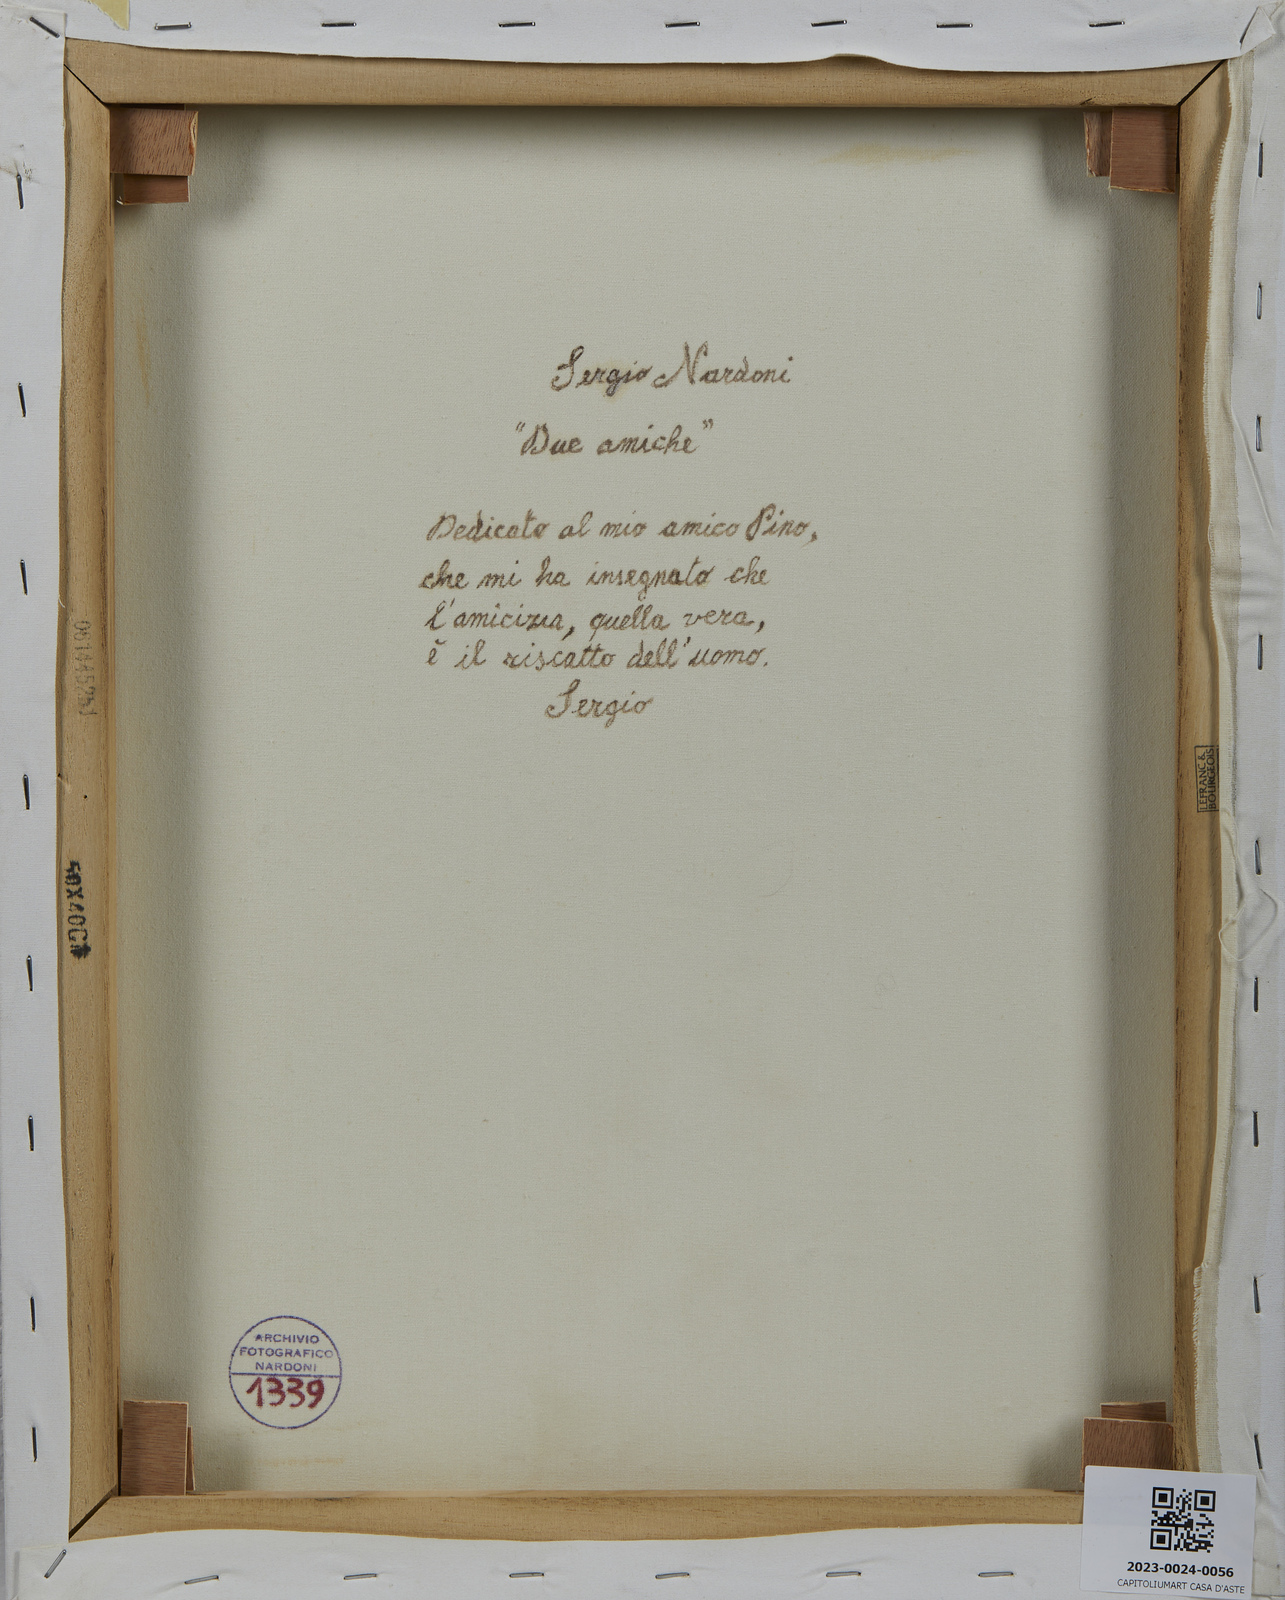 Sergio Nardoni
"Due amiche"
Dedicato al mio amico Pino,
che mi ha insegnato che
l'amicizia, quella vera,
è il riscatto dell'uomo.
Sergio
LEFRANC &
BOURGEOIS
ARCHIVIO
FOTOGRAFICO
NARDONI
1339
2023-0024-0056
CAPITOLIUMART CASA D'ASTE